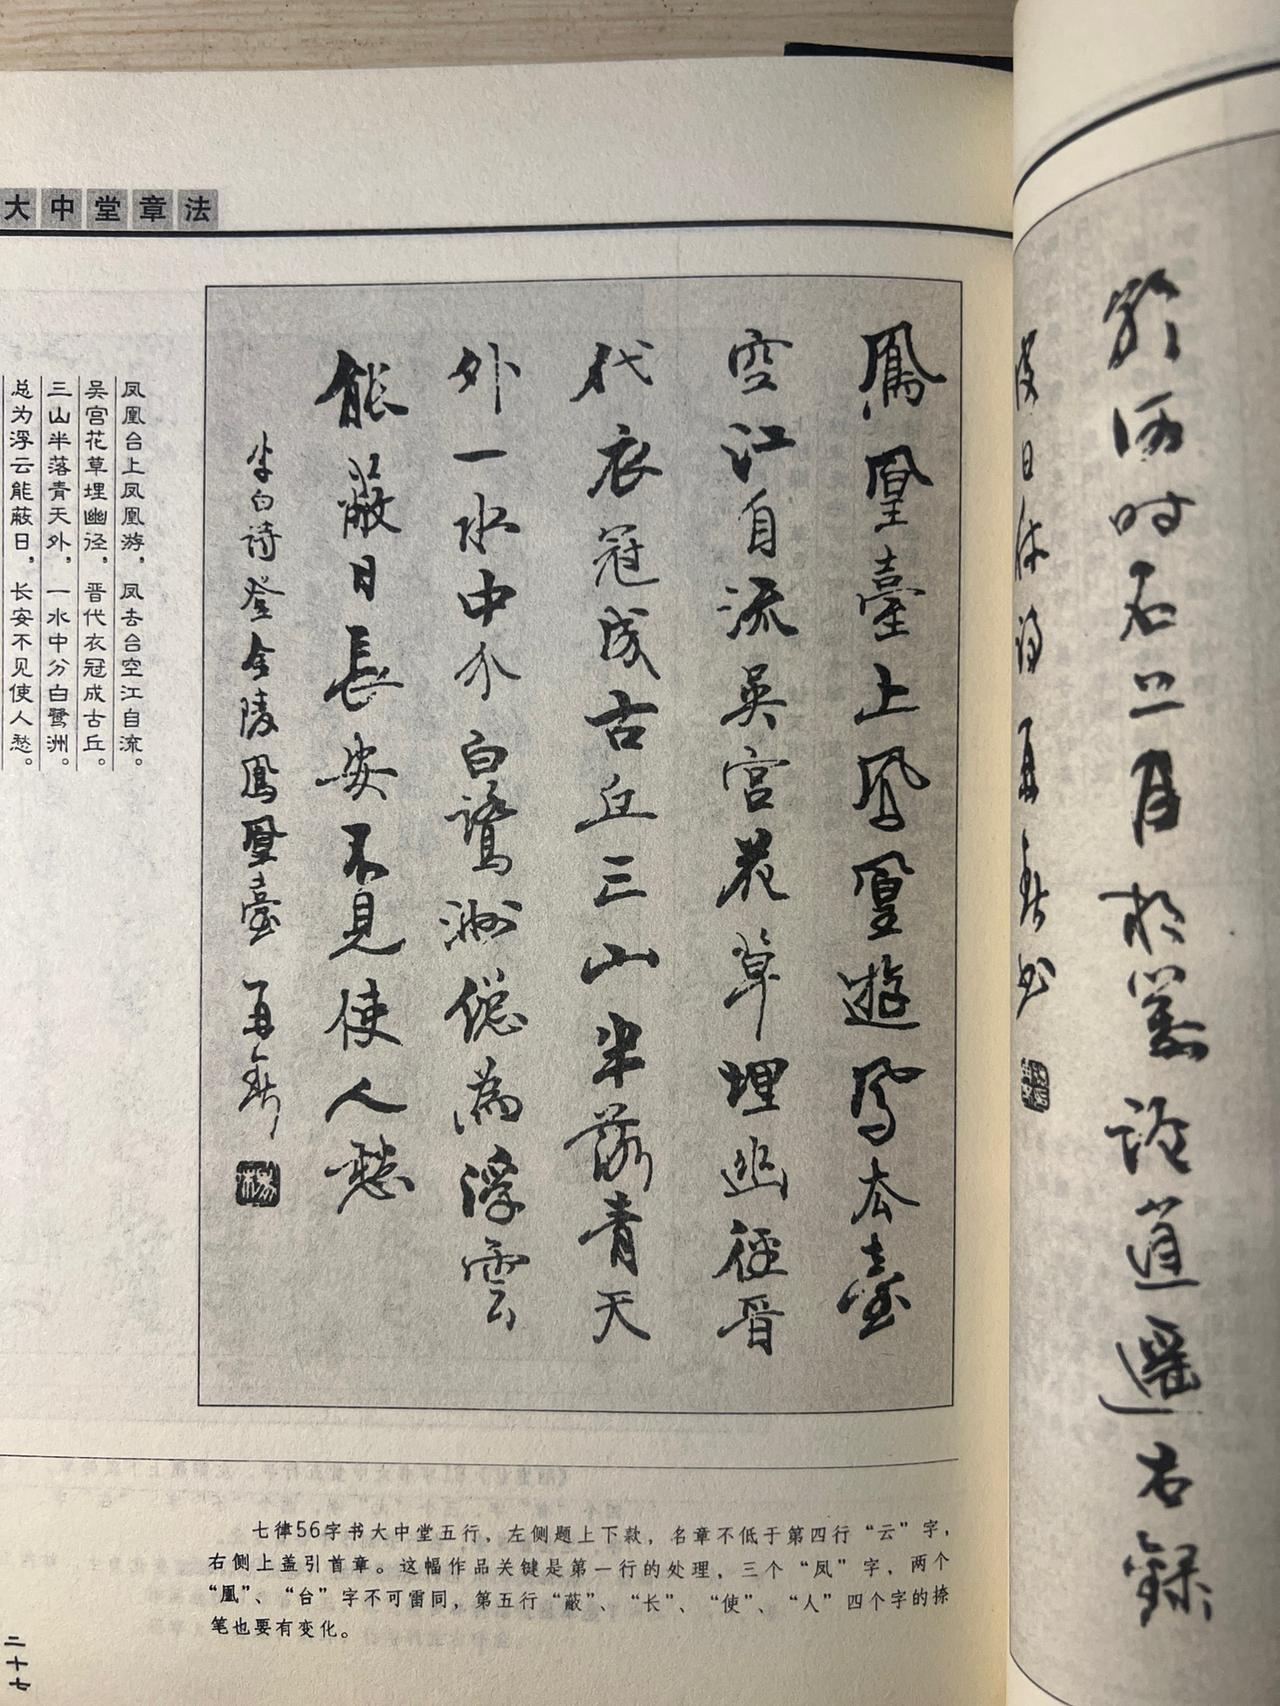 大中堂章法
凤凰台上凤凰游，凤去台空江自流。
吴宫花草埋幽径，晋代衣冠成古丘。
三山半落青天外，一水中分白鹭洲。
总为浮云能蔽日，长安不见使人愁。
鳳凰臺上鳳凰遊鳳去臺
空江自流吳宫花草埋幽徑晉
代衣冠成古丘三山半落青天
外一水中分白鷺洲總為浮雲
能蔽日長安不見使人愁
李白诗登金陵鳳凰臺 再春
楊
七律56字书大中堂五行，左侧题上下款，名章不低于第四行“云”字，
右侧上盖引首章。这幅作品关键是第一行的处理，三个“凤”字，两个
“凰”、“台”字不可雷同，第五行“蔽”、“长”、“使”、“人”四个字的捺
笔也要有变化。
二十七